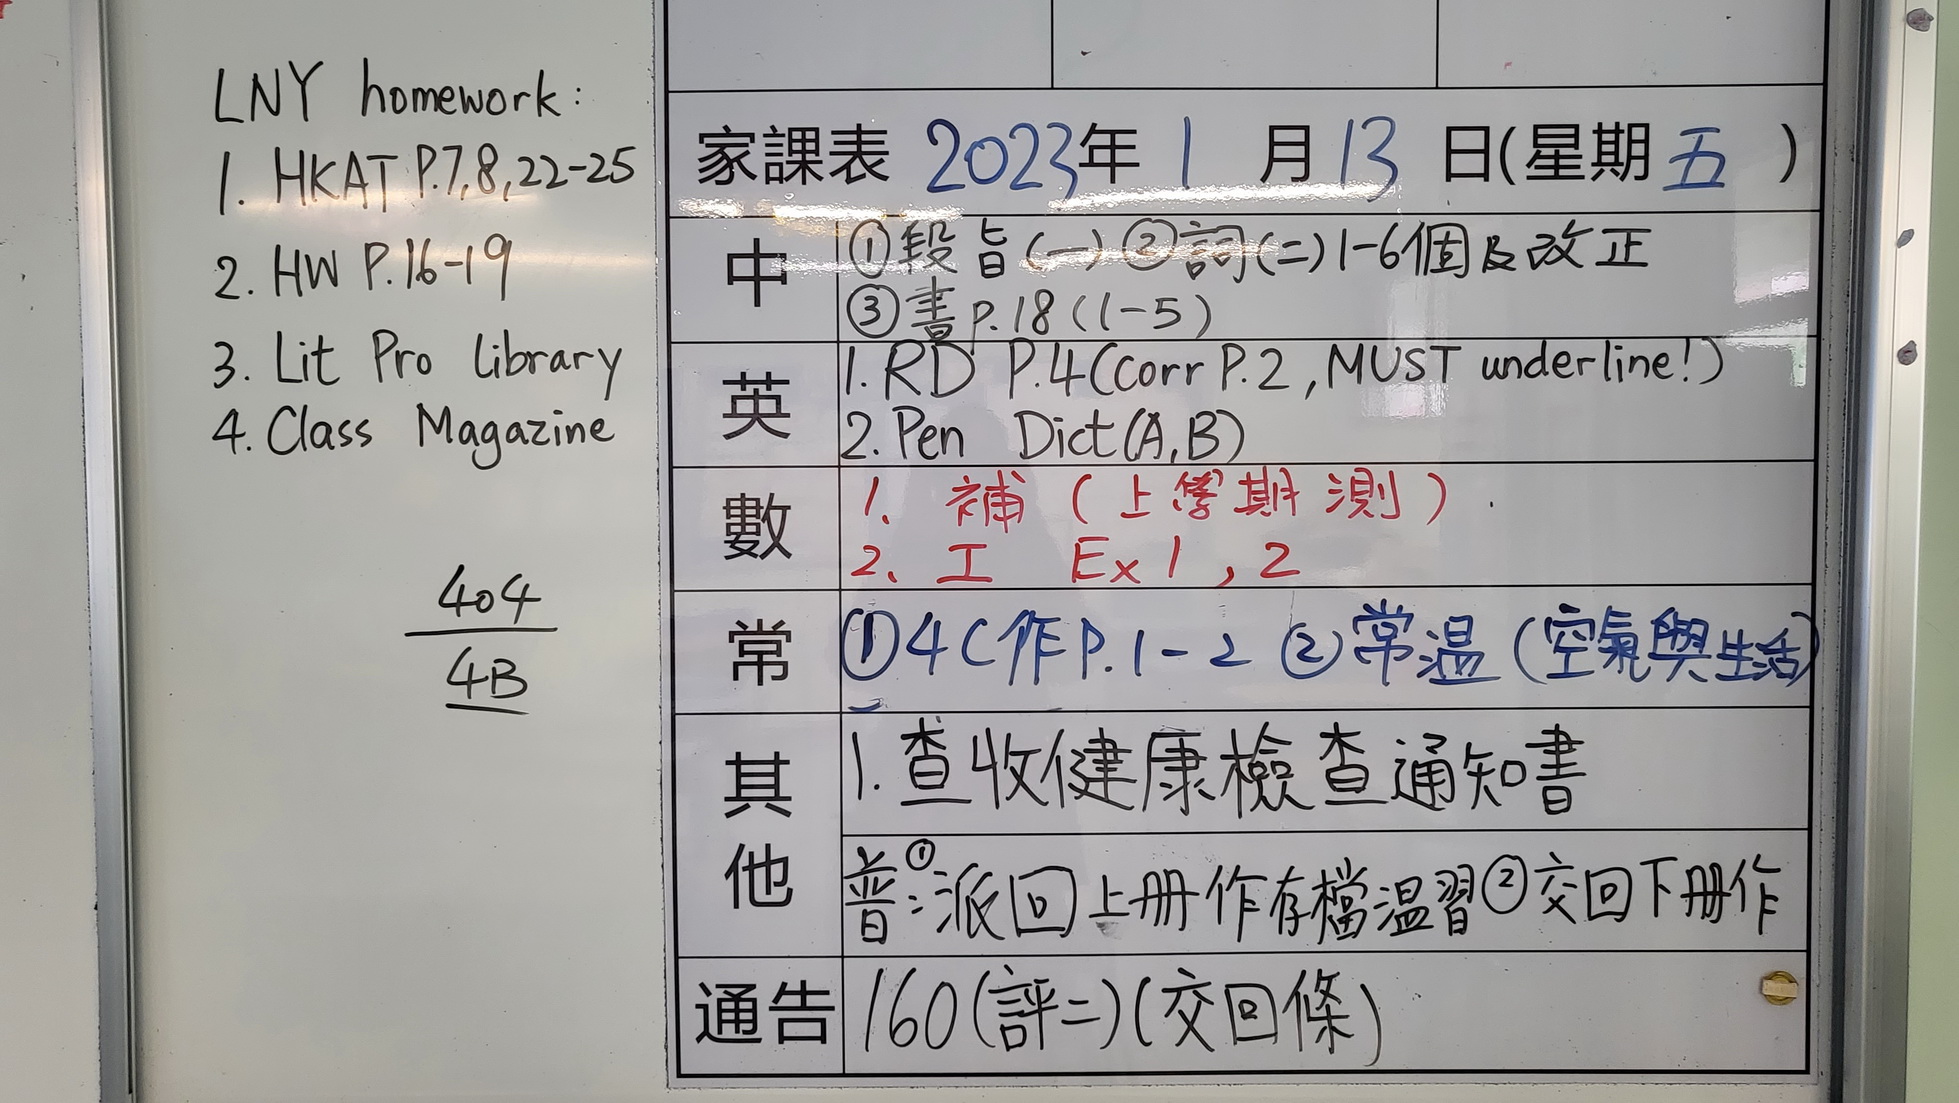 LNY homework:
1. HKAT P.7,8,22-25
2. HW P.16-19
3. Lit Pro library
4. Class Magazine
404
4B
家課表 2023年 1 月 13 日(星期 五 )
中
①段旨(一) ②詞(二)1-6個及改正
③書P.18(1-5)
英
1. RD P.4(corr P.2, MUST underline!)
2. Pen Dict(A,B)
數
1. 補(上學期測)
2. 工 Ex 1, 2
常
①4C作P.1-2 ②常温(空氣與生活)
其他
1. 查收健康檢查通知書
普:①派回上册作存檔温習②交回下册作
通告
160(評二)(交回條)